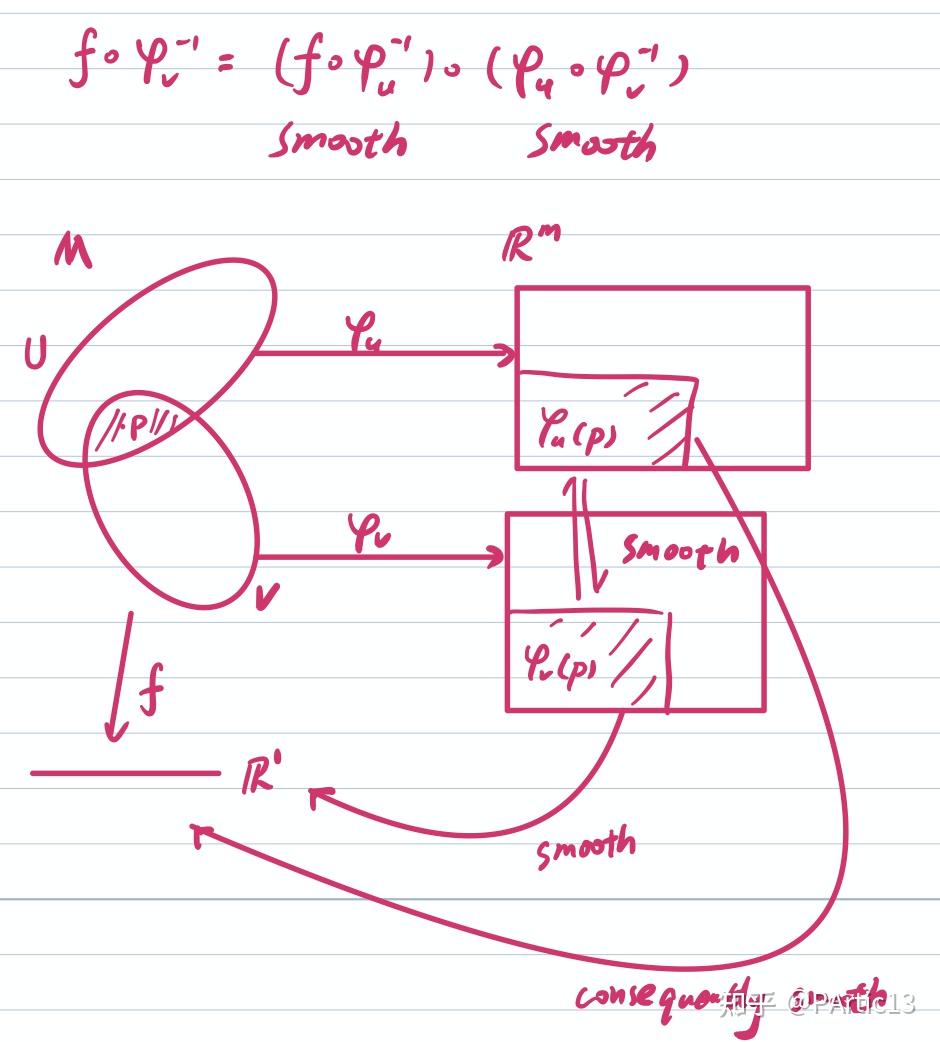 f∘φ_v⁻¹ = (f∘φ_u⁻¹)∘(φ_u∘φ_v⁻¹)
smooth smooth
M
ℝᵐ
U
φ_u
p
φ_u(p)
φ_v
smooth
V
φ_v(p)
f
ℝ¹
smooth
consequently smooth
知乎 @PArtic13